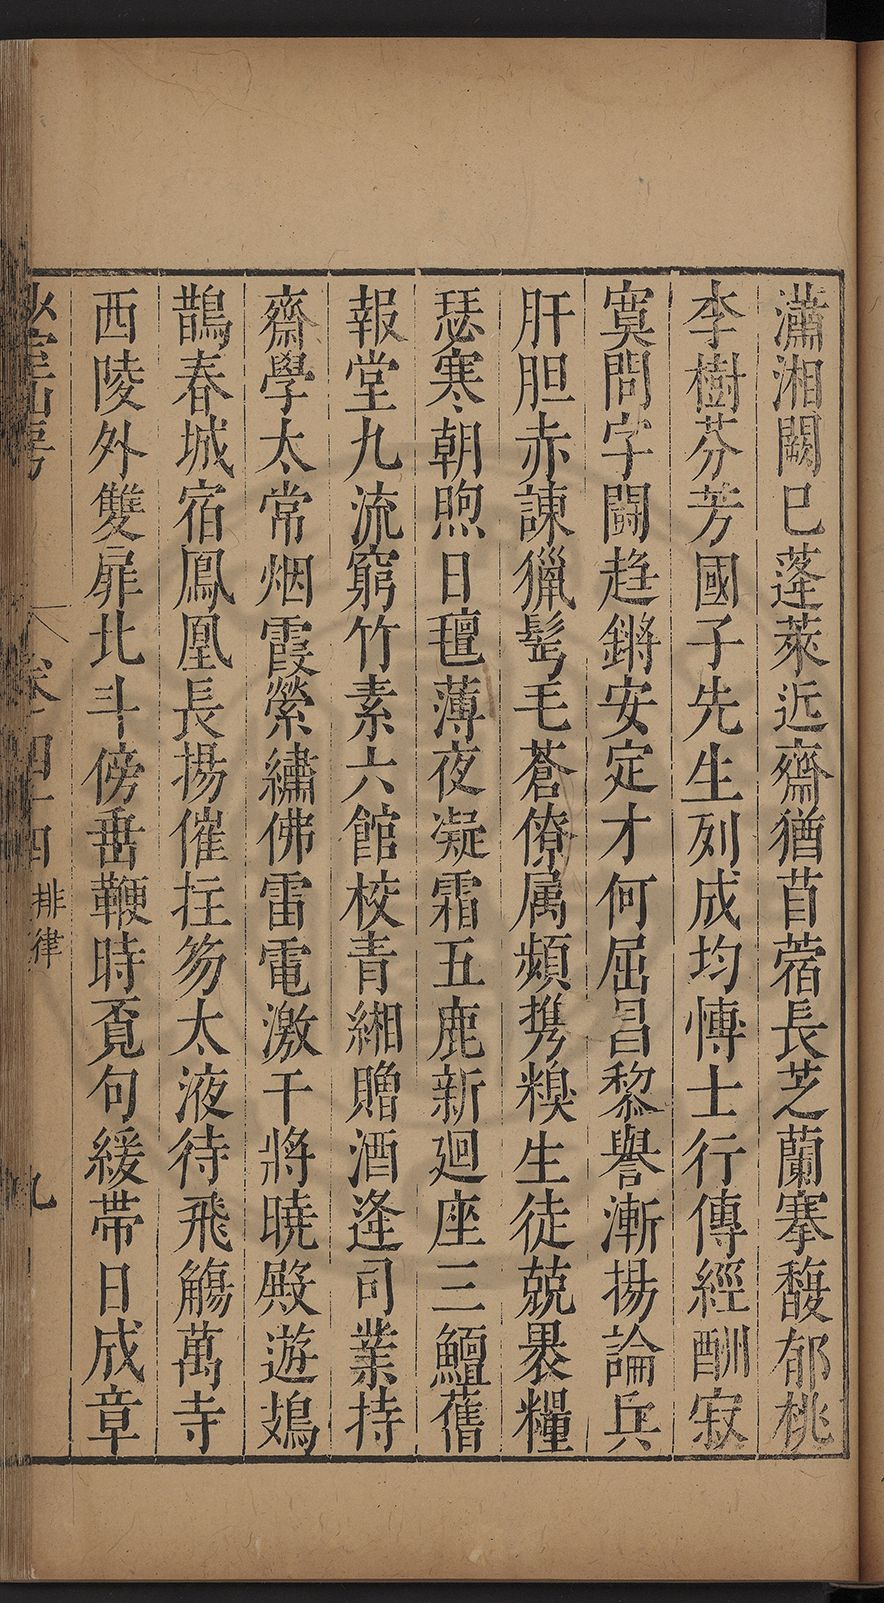 瀟湘闕巳蓬萊近齋猶苜蓿長芝蘭搴馥郁桃
李樹芬芳國子先生列成均博士行傳經酬寂
寞問字鬭趋鏘安定才何屈昌黎譽漸揚論兵
肝胆赤諫獵髩毛蒼僚属頻携糗生徒兢褁糧
瑟寒朝煦日氊薄夜凝霜五鹿新廻座三鱣舊
報堂九流窮竹素六館校青緗贈酒逢司業持
齋學太常烟霞縈繡佛雷電激干將曉殿遊鳷
鵲春城宿鳳凰長揚催拄笏太液待飛觴萬寺
西陵外雙扉北斗傍垂鞭時覔句緩帯日成章
山房 卷 四十四 排律 九